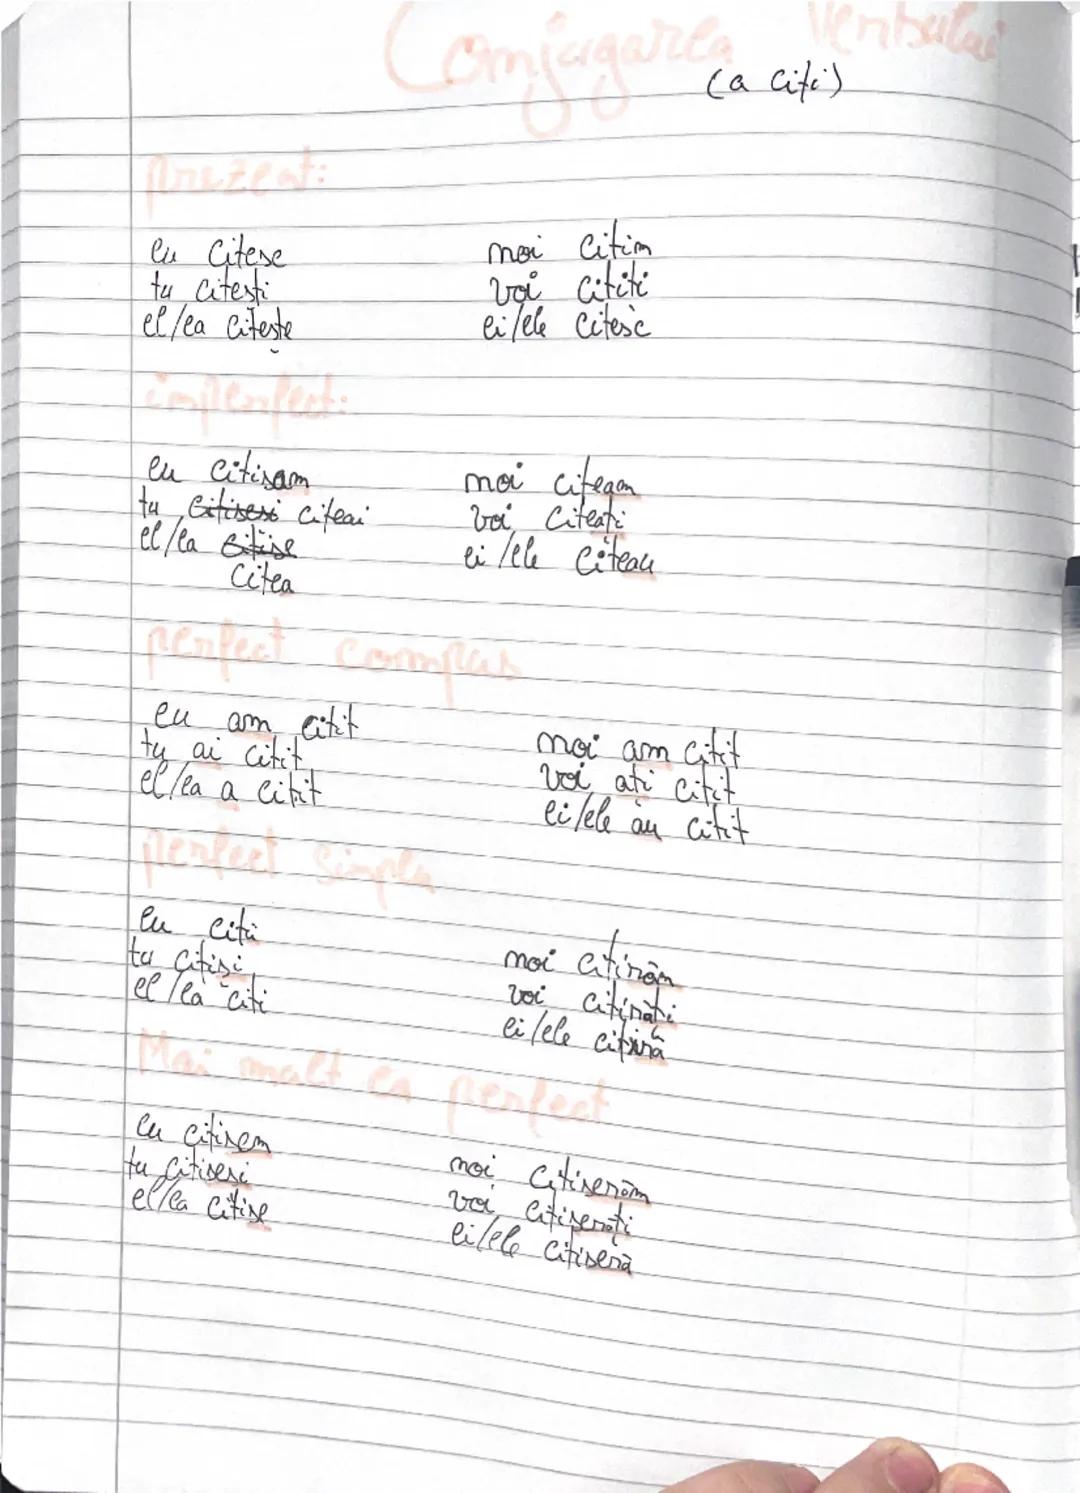 Conjugarea Verbului
(a citi)
prezent:
eu citesc
tu citești
el/ea citește
noi citim
voi citiți
ei/ele citesc
imperfect:
eu citisam
tu citisesi citeai
el/ea citise
citea
noi citeam
voi citeați
ei/ele citeau
perfect compus
eu am citit
tu ai citit
el/ea a citit
noi am citit
voi ați citit
ei/ele au citit
perfect simplu
eu citii
tu citiși
el/ea citi
noi citirăm
voi citirăți
ei/ele citiră
Mai mult ca perfect
eu citisem
tu citisesi
el/ea citise
noi citiserăm
voi citiserăți
ei/ele citiseră